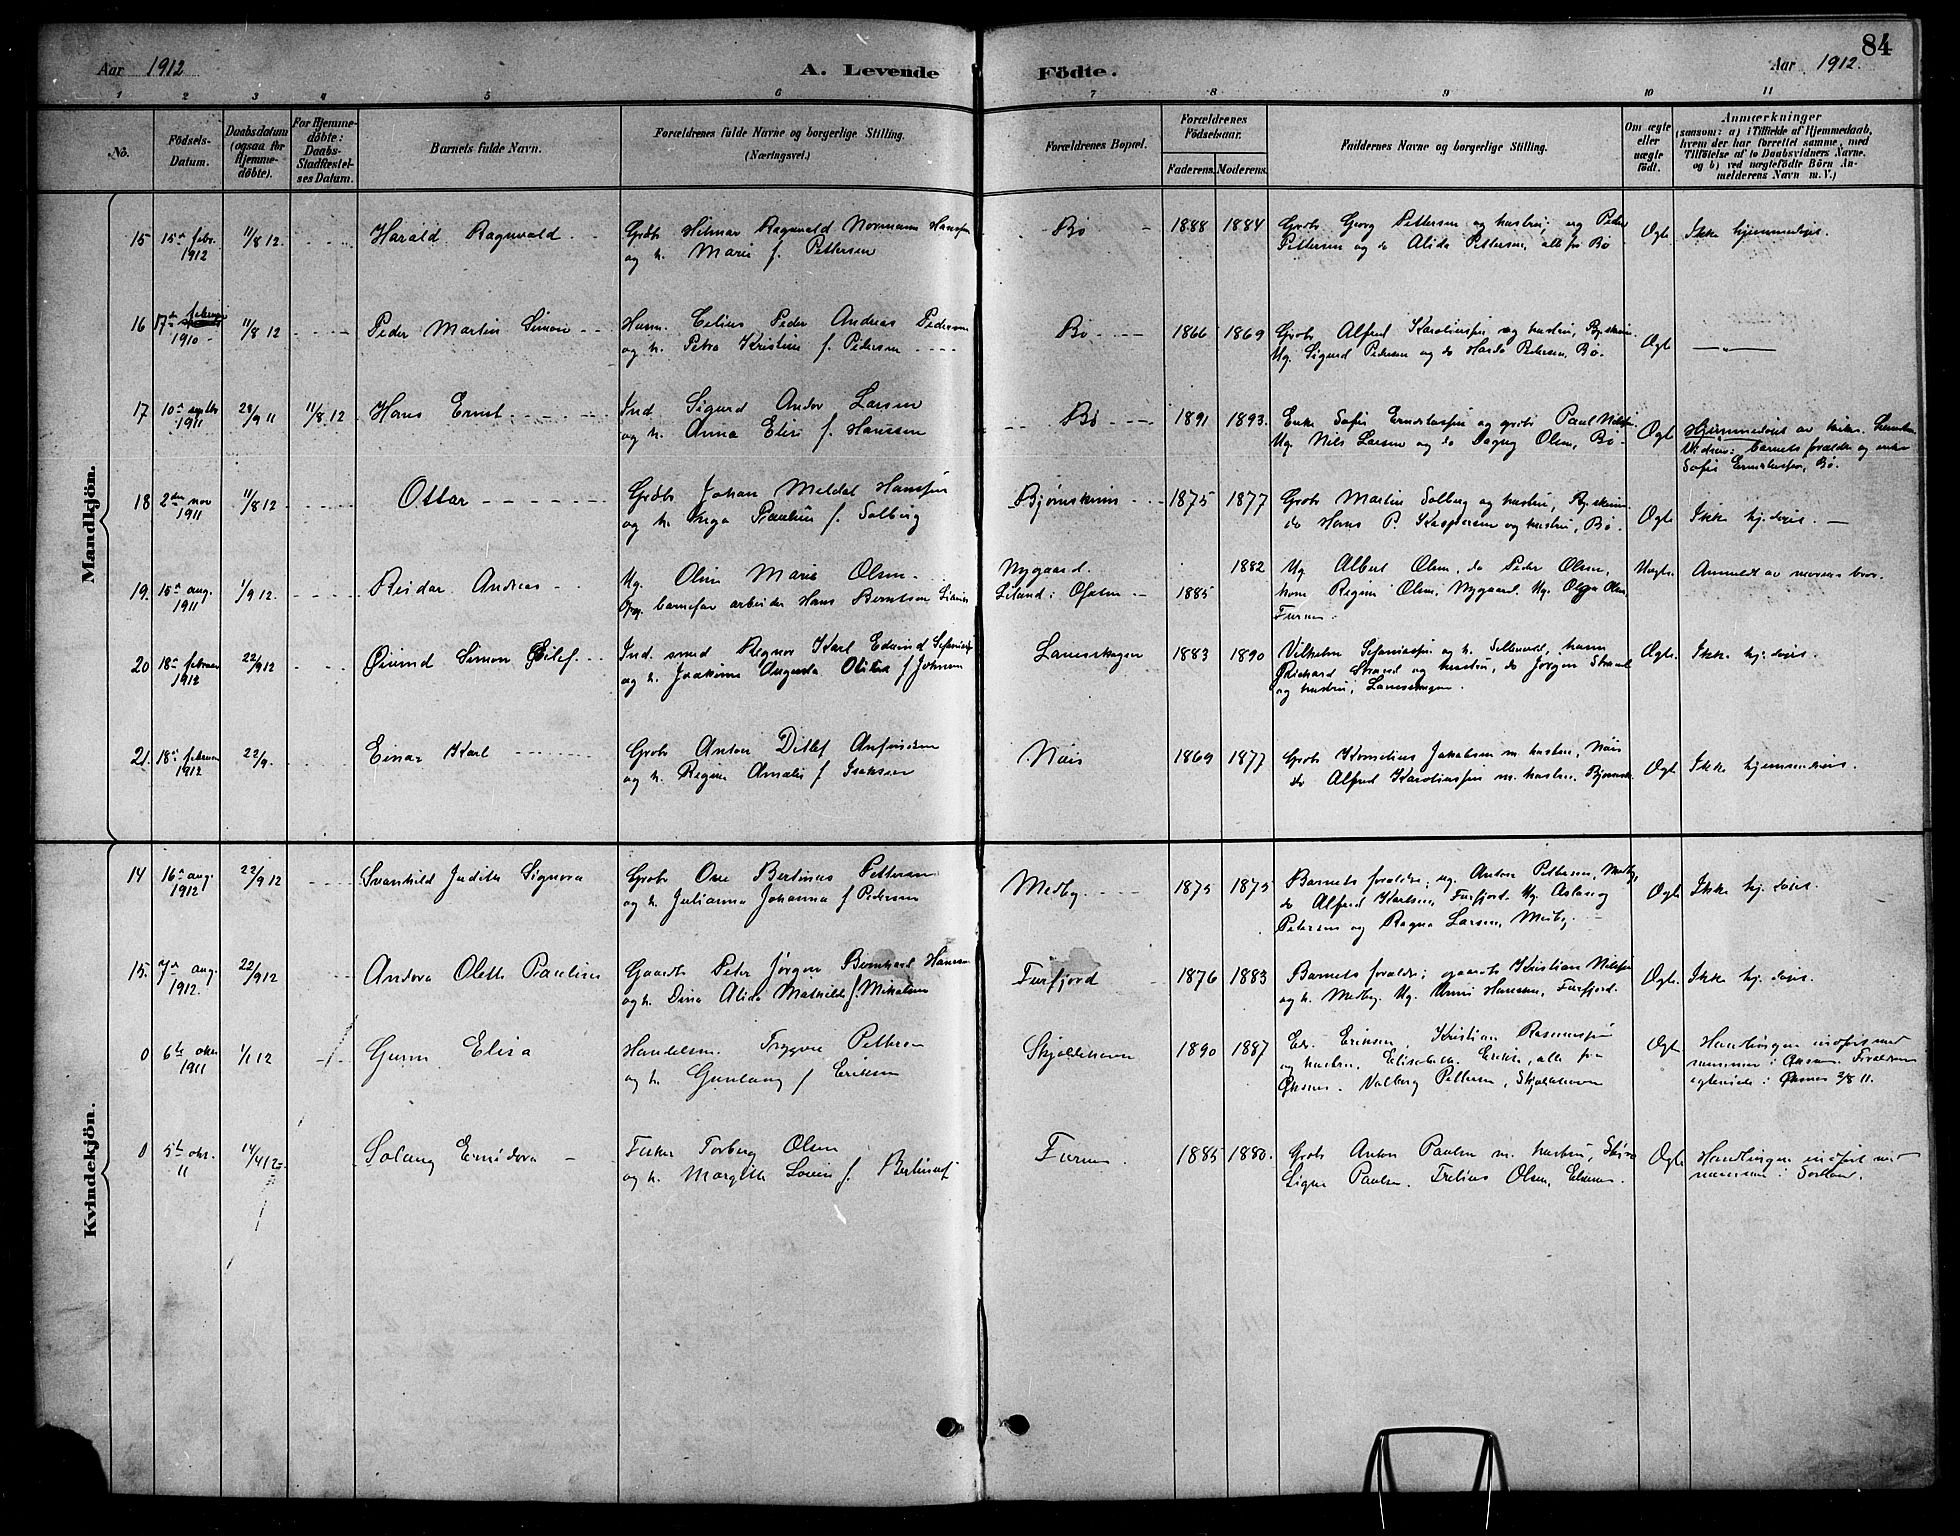 84
Aar 1912
A. Levende Födte.
Aar 1912.
1 2 3 4 5 6 7 8 9 10 11
No.
Födsels-Datum.
Daabsdatum (ogsaa for Hjemme-döbte).
For Hjemme-döbte: Daabs-Stadfæstel-ses Datum.
Barnets fulde Navn.
Forældrenes fulde Navne og borgerlige Stilling.
(Næringsvei.)
Forældrenes Bopæl.
Forældrenes Födselsaar.
Faderens. Moderens.
Faddernes Navne og borgerlige Stilling.
Om ægte eller uægte födt.
Anmærkninger
(saasom: a) i Tilfælde af Hjemmedaab, hvem der har forrettet samme, med Tilföielse af to Daabsvidners Navne, og b) ved uægtefödte Börn An-melderens Navn m. V.)
Mandkjön.
15 15de febr. 1912 11/8 12. Harald Ragnvald Grdbr Hilmar Ragnvald Normann Hansen
og h. Marie f. Pettersen
Bø 1888 1884 Grdb Georg Pettersen og hustru; ug Peder
Pettersen og do Alida Pettersen, alle fra Bø
Ægte Ikke hjemmedøpt.
16 17de februar 1910 11/8 12 Peder Martin Simon Husm. Edius Peder Andreas Pedersen
og h. Petra Kristine f. Pedersen
Bø 1866 1869 Grdb Alfred Karoliussen og hustru, Bjørnskin.
Ug. Sigurd Pedersen og do Petersen, Bø.
Ægte — „ —
17 10de 1911 28/9 11 11/8 12 Hans Ernst Ind. Sigurd Andor Larsen
og h. Anna Elise f. Hanssen
Bø 1891 1893. Enke Sofie Ernstussen og grdb Paul Nilsen
Ug. Nils Larsen og do Dagny Olsen, Bø.
Ægte Hjemmedøpt av
Vidner: barnets forældre og enke
Sofie Bø.
18 2den nov 1911 11/8 12 Ottar Grdbr Johan Meldal Hanssen
og h. Inga Pauline f. Solberg
Bjørnskinn 1875 1877 Grdb Martin Solberg og hustru, Bj.skinn.
do Hans P. Kaspersen og hustru, Bø.
Ægte Ikke hj.døpt.
19. 15de aug. 1911 1/9 12. Reidar Andreas Ug. Oline Marie Olsen
Opg. barnefar arbeider Hans Berntsen
Nygaard
Liland i Ofoten
1882
1885
Ug Albert Olsen, do Peter Olsen,
kone Regine Olsen, Nygaard. Ug. Olga Olsen
Furnes.
Uægte. Anmeldt av morens bror.
20 18de februar 1912 22/9 12 Øivind Simon Eilef Ind. smed Ragnar Karl Edvind
og h. Joakime Augusta Olitea f Johnsen
Laneskogen 1883 1890 Vilhelm og h. husm
Richard Strand og hustru, do Jørgen Strand
og hustru, Laneskogen.
Ægte. Ikke hj.døpt.
21. 18de februar 1912 22/9. Einar Karl Grdb Anton Ditlef Anfinsen
og h. Regine Amalie f Isaksen
Nøis 1869 1877 Grdb Kornelius Jakobsen m. hustru, Nøis
do Alfred Karoliussen m. hustru, Bjørnsk.
Ægte Ikke hjemmedøpt.
Kvindekjön.
14 16de aug. 1912 22/9 12 Svanhild Judith Signora Grdb Ove Bertinus Pettersen
og h. Julianna Johanna f Pedersen
Medby 1875 1875 Barnets forældre; ug. Anton Pettersen, Medby,
do Alfred Karlsen, Furfjord. Ug. Aslaug
Petersen og Ragna Larsen, Medby.
Ægte Ikke hj.døpt.
15. 7de aug. 1912. 22/9 12 Andora Olette Pauline Gaardb Peter Jørgen Bernhard Hansen
og h. Dina Alida Mathilde f. Mikalsen
Furfjord 1876 1883 Barnets forældre; gaardb Kristian Nilsen
og h. Medby. Ug. Anni Hansen, Furfjord.
Ægte. Ikke hj.døpt.
0 6te okt 1911 1/1 12 Gunn Elisa Handelsm. Trygve Pettersen
og h. Gunlaug f Eriksen
Skjoldehavn 1890 1887 Er. Eriksen, Kristian Rasmussen
og hustru, Elisabeth Eriksen, alle fra
Øksnes. Valborg Pettersen, Skjoldehavn
Ægte Handlingen indført med
nummer i Øksnes. Forældrene
egteviede i Øksnes 3/8 11.
0 5te okt. 11 14/4 12 Solaug Ensidora Fisker Torberg Olsen
og h. Margith Lovise f. Bertinsen
Furnes. 1885 1880. Grdb Anton Paulsen m. hustru,
Signe Paulsen. Trelius Olsen, Elsnes.
Ægte Handlingen indført med
nummer i Sortland.